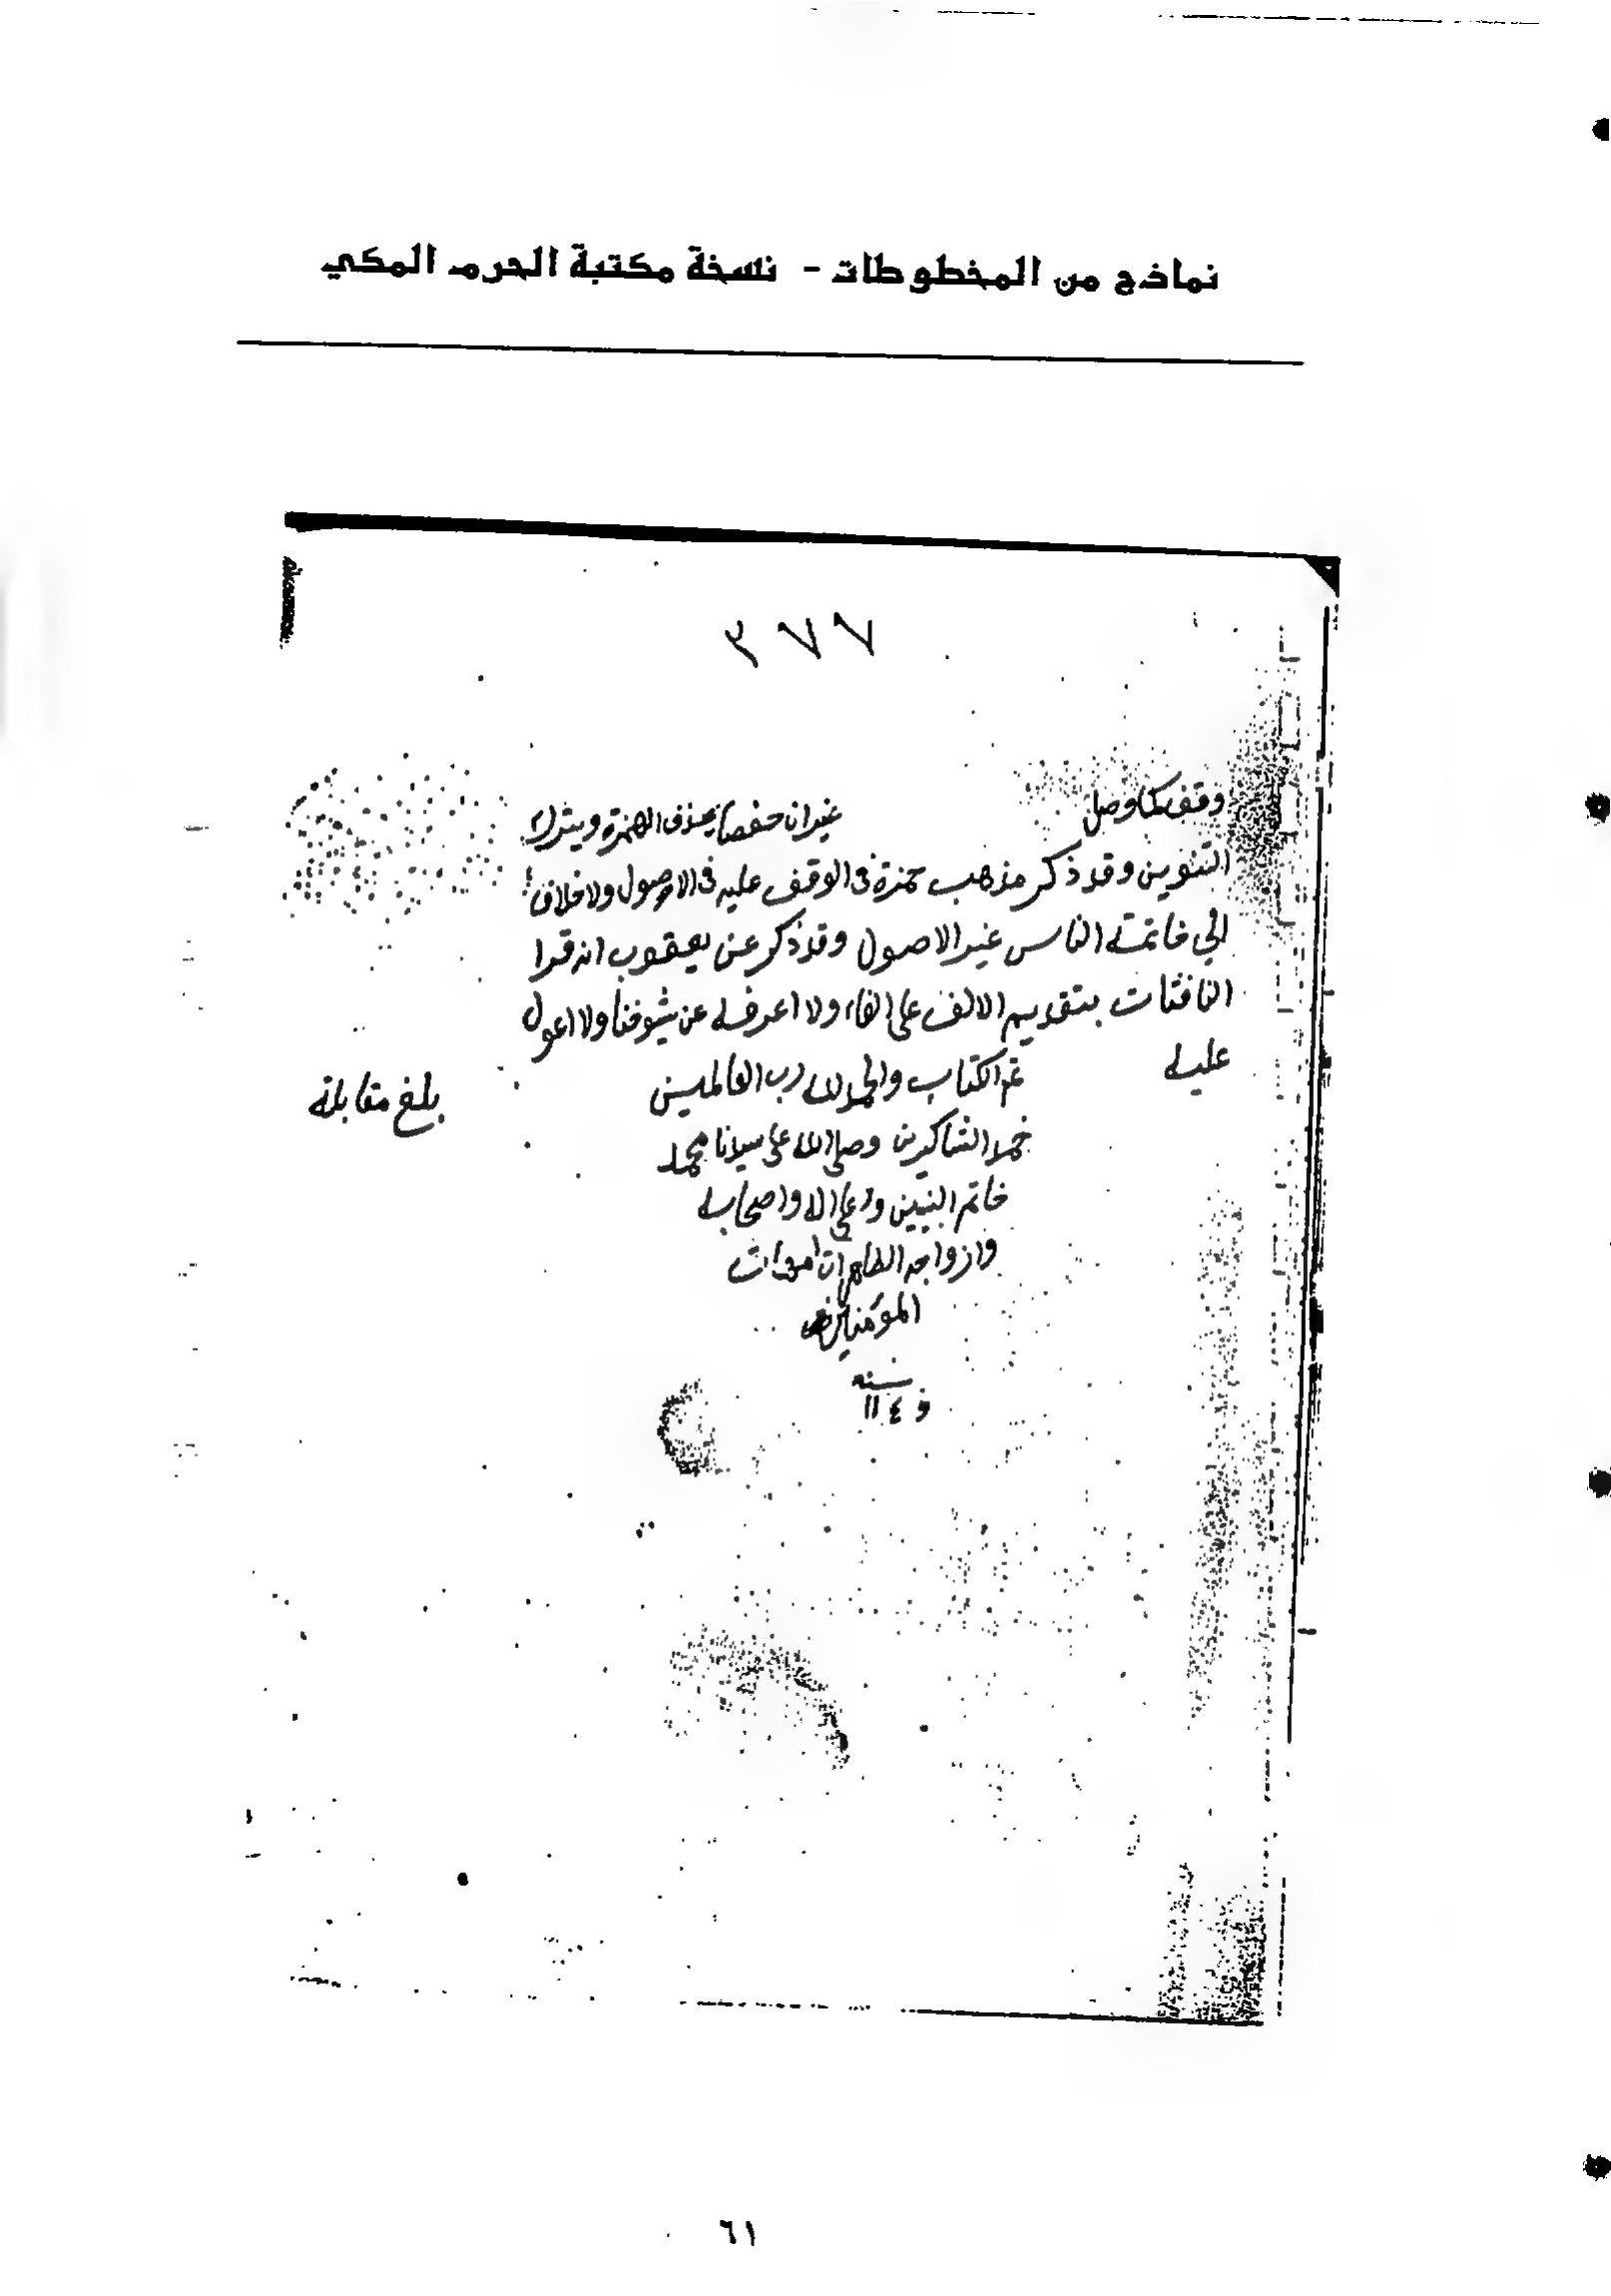 نماذج من المخطوطات - نسخة مكتبة الحرم المكي
٣٧٧
وقف كما وصل غير ان حفصا يحذف الهمزة ويترك
التنوين وقد ذكر مذهب حمزة في الوقف عليه في الاصول ولا خلاف
الي خاتمة الناس غير الاصول وقد ذكر عن يعقوب انه قرا
النافثات بتقديم الالف على الفاء ولا اعرفه عن شيوخنا ولا اعول
عليه تم الكتاب والحمد لله رب العالمين
بلغ مقابلة
حمد الشاكرين وصلى الله على سيدنا محمد
خاتم النبيين وعلى اله واصحابه
وازواجه الطاهرات امهات
المؤمنين
سنة
١١٤٠
٦١